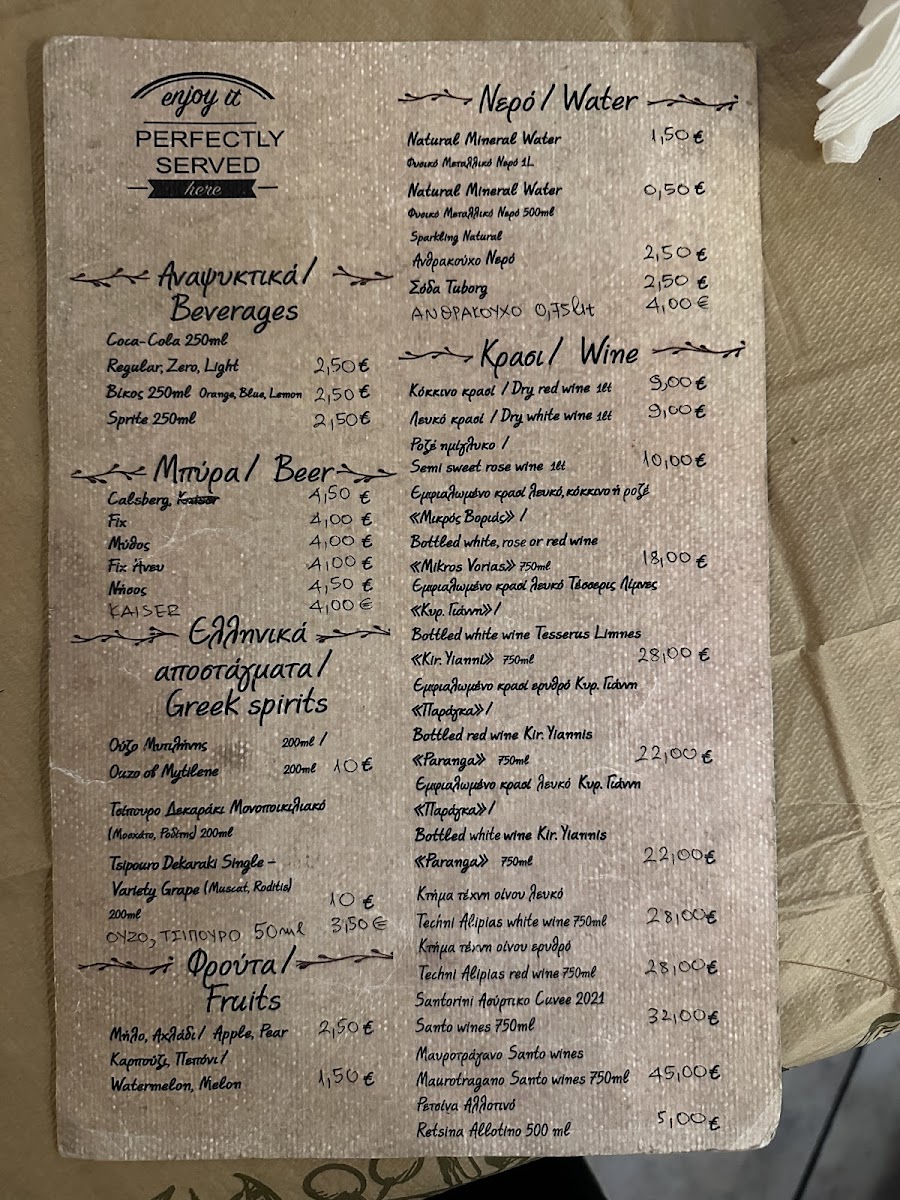 enjoy it
PERFECTLY
SERVED
here
Αναψυκτικά/
Beverages
Coca-Cola 250ml
Regular, Zero, Light 2,50€
Βίκος 250ml Orange, Blue, Lemon 2,50€
Sprite 250ml 2,50€
Μπύρα/ Beer
Calsberg, Kaiser 4,50 €
Fix 4,00 €
Μύθος 4,00 €
Fix Άνευ 4,00 €
Νήσος 4,50 €
KAISER 4,00 €
Ελληνικά
αποστάγματα/
Greek spirits
Ούζο Μυτιλήνης 200ml /
Ouzo of Mytilene 200ml 10€
Τσίπουρο Δεκαράκι Μονοποικιλιακό
(Μοσχάτο, Ροδίτης) 200ml
Tsipouro Dekaraki Single –
Variety Grape (Muscat, Roditis)
200ml 10 €
ΟΥΖΟ, ΤΣΙΠΟΥΡΟ 50ml 3,50€
Φρούτα/
Fruits
Μήλο, Αχλάδι/ Apple, Pear 2,50€
Καρπούζι, Πεπόνι/
Watermelon, Melon 1,50€
Νερό/ Water
Natural Mineral Water 1,50€
Φυσικό Μεταλλικό Νερό 1L
Natural Mineral Water 0,50€
Φυσικό Μεταλλικό Νερό 500ml
Sparkling Natural
Ανθρακούχο Νερό 2,50€
Σόδα Tuborg 2,50 €
ΑΝΘΡΑΚΟΥΧΟ 0,75lit 4,00€
Κρασι/ Wine
Κόκκινο κρασί / Dry red wine 1lt 9,00€
Λευκό κρασί / Dry white wine 1lt 9,00€
Ροζέ ημίγλυκο /
Semi sweet rose wine 1lt 10,00€
Εμφιαλωμένο κρασί λευκό, κόκκινο ή ροζέ
«Μικρός Βοριάς» /
Bottled white, rose or red wine
«Mikros Vorias» 750ml 18,00€
Εμφιαλωμένο κρασί λευκό Τέσσερις Λίμνες
«Κυρ. Γιάννη»/
Bottled white wine Tesserus Limnes
«Kir. Yianni» 750ml 28,00 €
Εμφιαλωμένο κρασί ερυθρό Κυρ. Γιάννη
«Παράγκα»/
Bottled red wine Kir. Yiannis
«Paranga» 750ml 22,00€
Εμφιαλωμένο κρασί λευκό Κυρ. Γιάννη
«Παράγκα»/
Bottled white wine Kir. Yiannis
«Paranga» 750ml 22,00€
Κτήμα τέχνη οίνου λευκό
Techni Alipias white wine 750ml 28,00€
Κτήμα τέχνη οίνου ερυθρό
Techni Alipias red wine 750ml 28,00€
Santorini Ασύρτικο Cuvee 2021
Santo wines 750ml 32,00€
Μαυροτράγανο Santo wines
Maurotragano Santo wines 750ml 45,00€
Ρετσίνα Αλλοτινό
Retsina Allotino 500 ml 5,00€